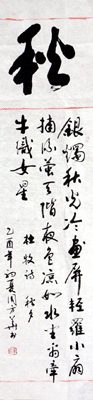 秋
銀燭秋光冷畫屏輕羅小扇
撲流螢天階夜色涼如水坐看牽
牛織女星
杜牧詩 秋夕
乙酉年初夏周